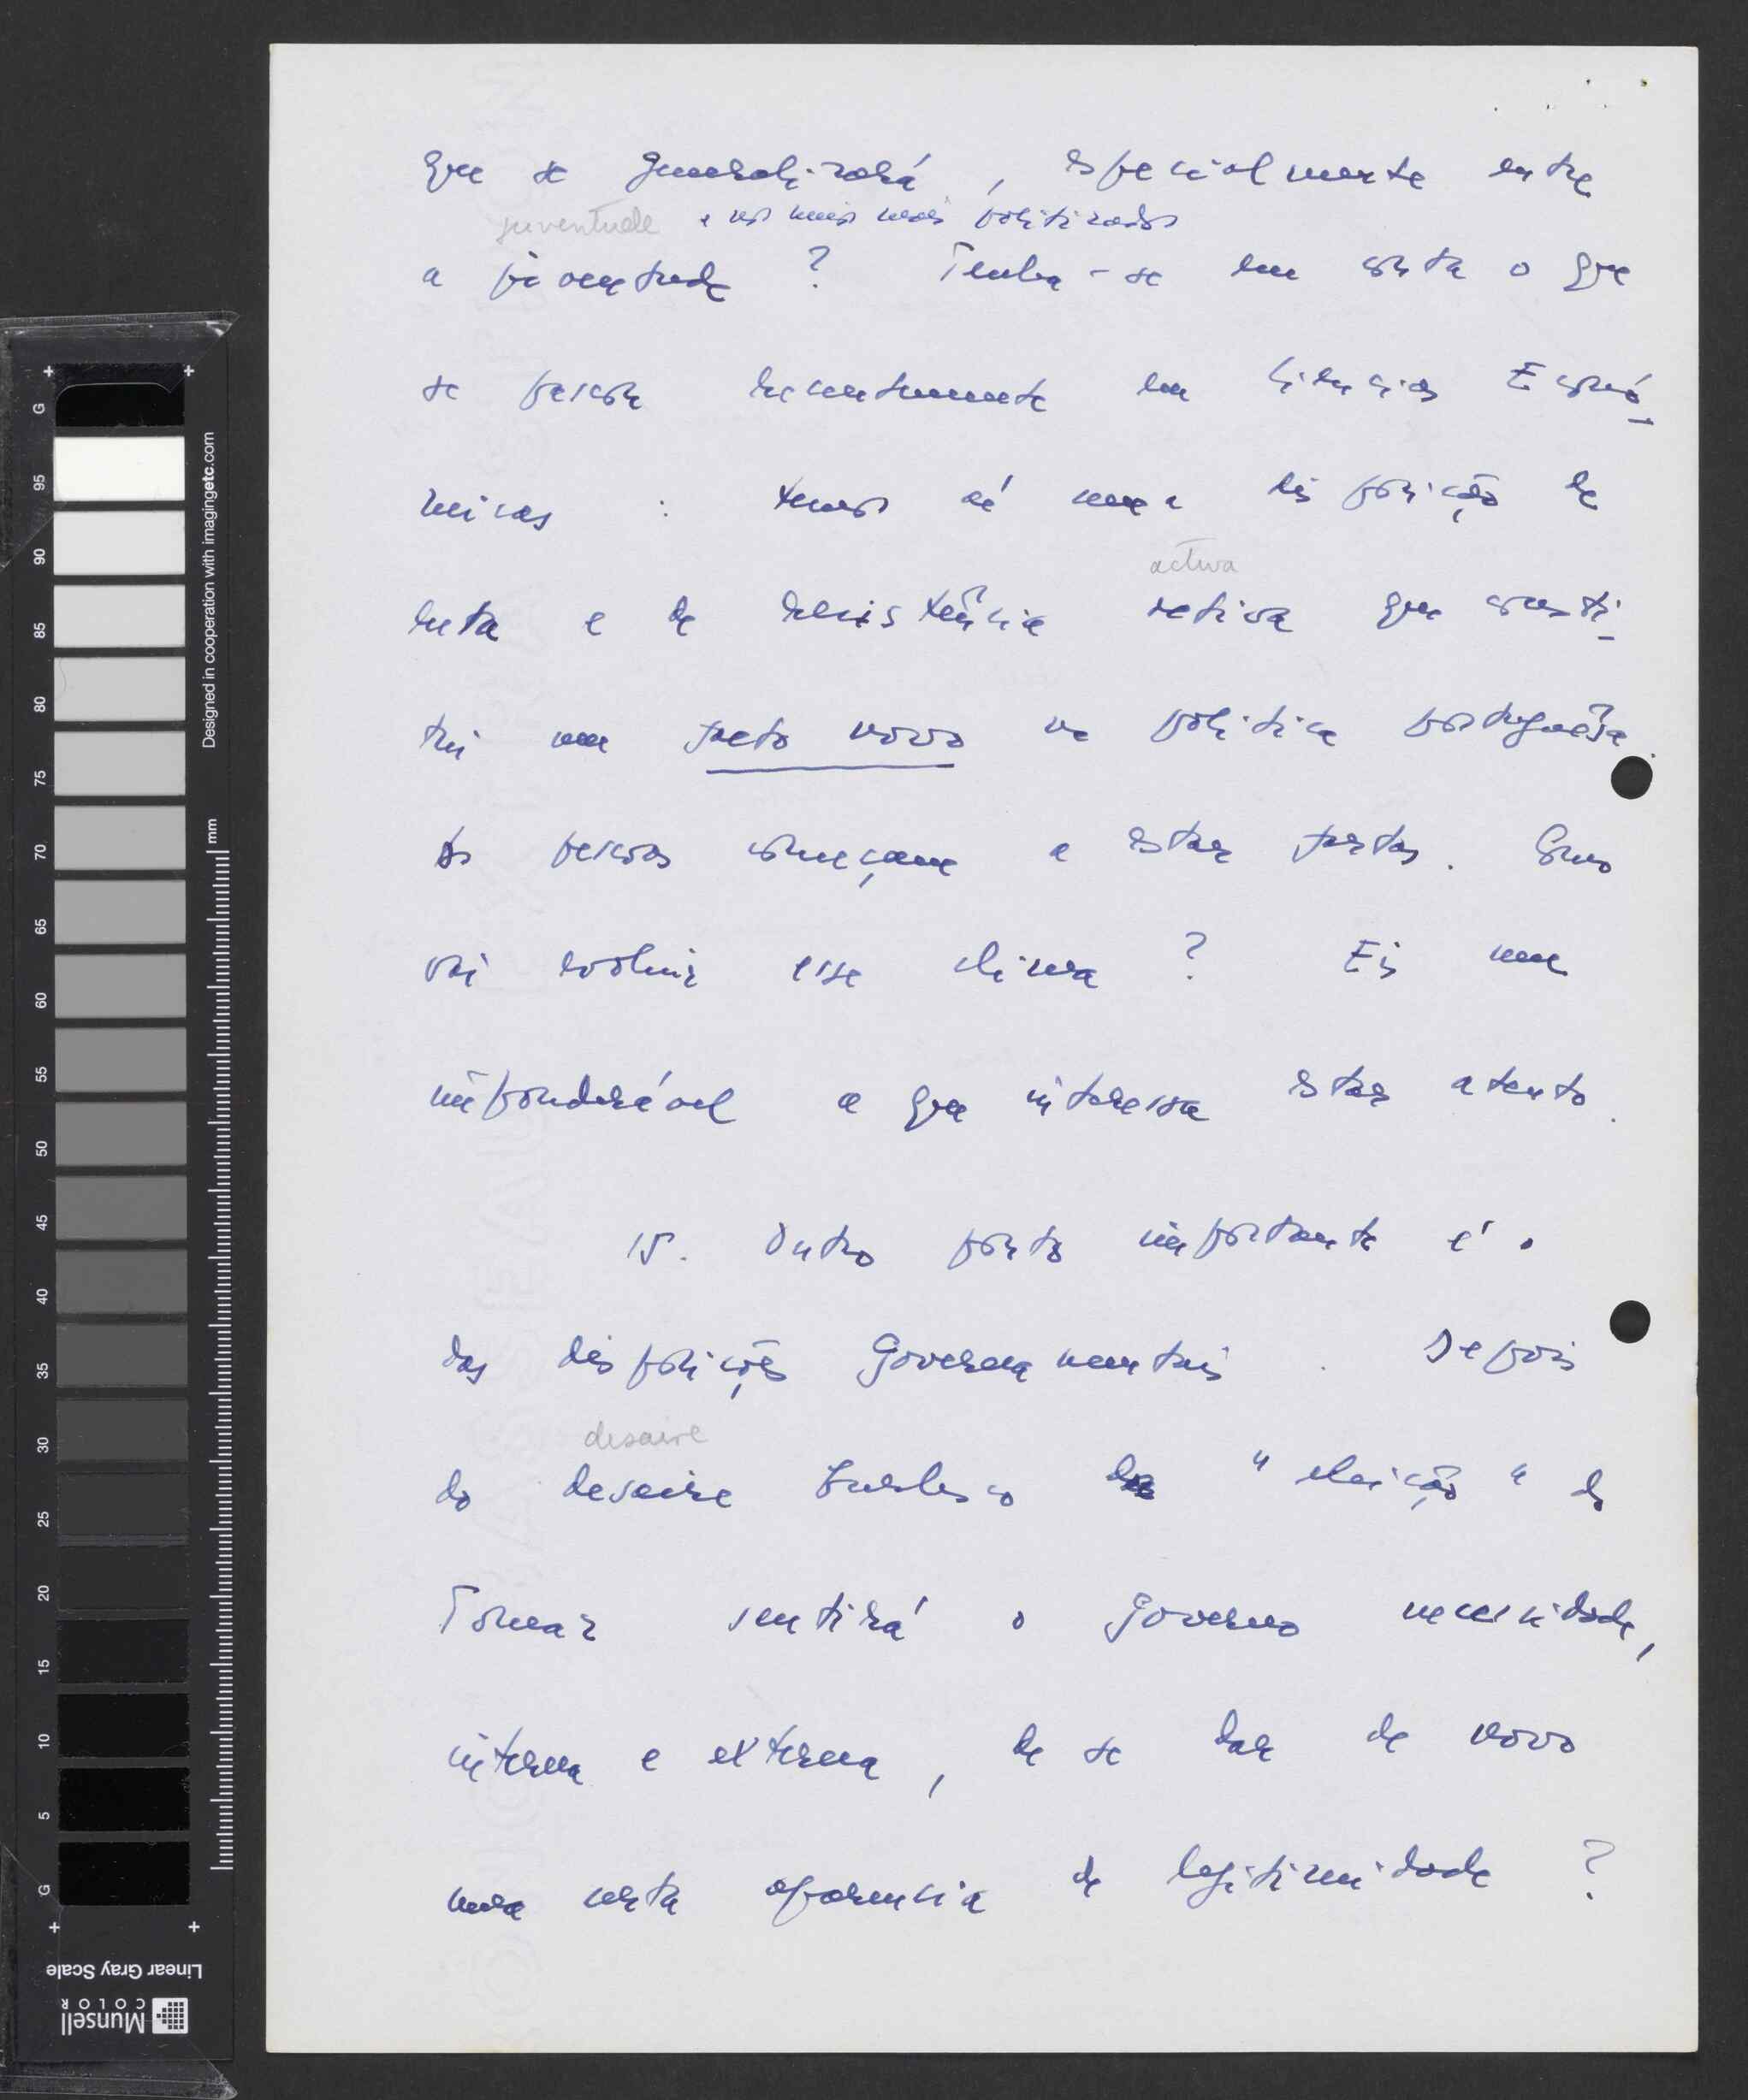 que se generalizará, especialmente entre
juventude e nos meios mais politizados
a juventude ? Tenha-se em conta o que
se passou recentemente em Ciências Econó-
micas : temos aí uma disposição de
activa
luta e de resistência activa que consti-
tui um facto novo na política portuguêsa.
As pessoas começam a estar fartas. Como
vai evoluir esse clima ? Eis um
imponderável a que interessa estar atento.
15. Outro ponto importante é o
das disposições Governamentais . Depois
desaire
do desaire burlesco da "eleição" do
Tomaz sentirá o Governo necessidade,
interna e externa, de se dar de novo
uma certa aparencia de legitimidade ?
G
95
90
85
80
75
70
65
60
55
50
45
40
35
30
25
20
15
10
5
G
mm
Designed in cooperation with imagingetc.com
Linear Gray Scale
Munsell
COLOR